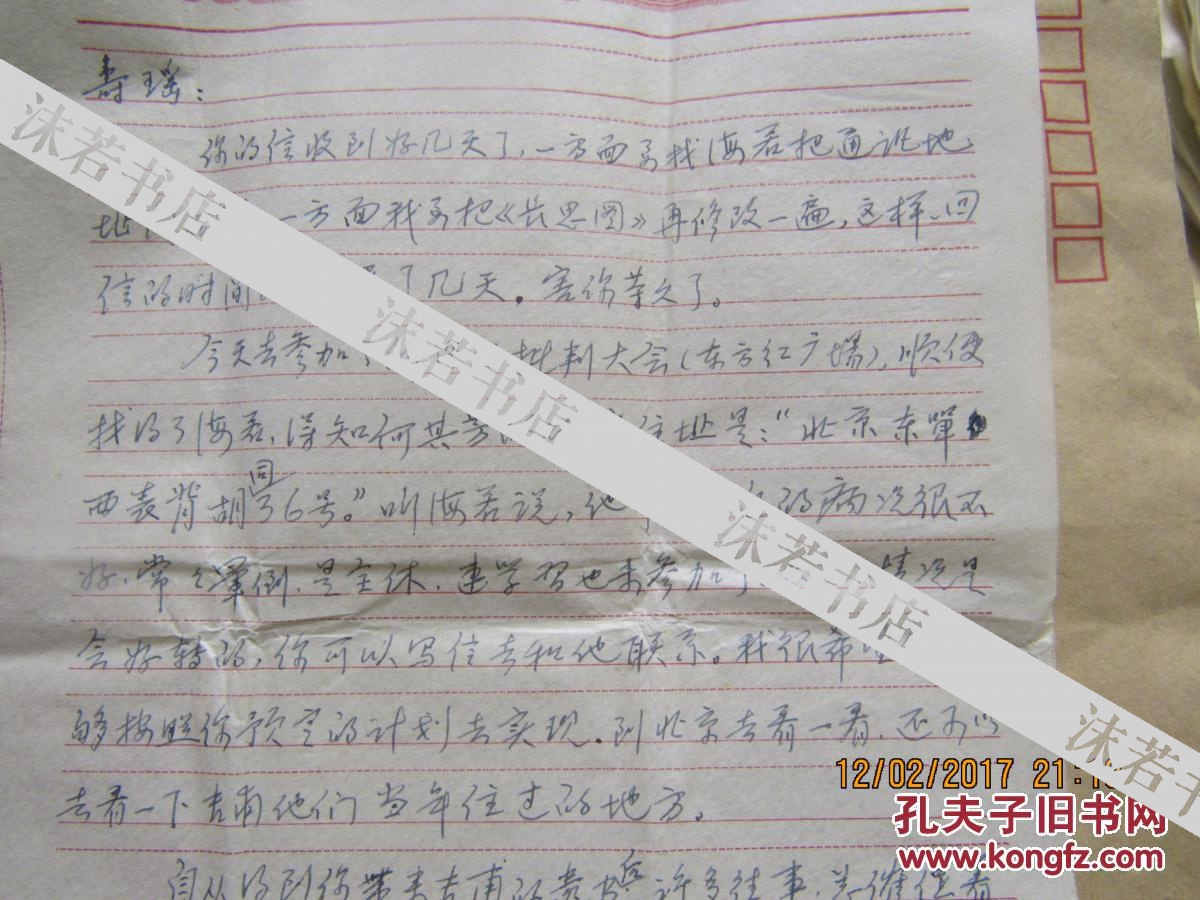 寿瑶：
你的信收到好几天了，一方面要找海若把通讯地
址 一方面我要把《长思图》再修改一遍，这样，回
信的时间 了几天。害你等久了。
今天去参加 批判大会（东方红广场），顺便
找到了海若，得知何其芳 住址是：“北京东单
西裱背胡同36号。”听海若说，他 的病况很不
好，常常晕倒，是全休，连学习也未参加 情况是
会好转的，你可以写信去和他联系。我很希
够按照你预定的计划去实现。到北京去看一看，还可以
去看一下吉甫他们当年住过的地方。
自从得到你带来吉甫的 后 许多往事，
沫若书店
沫若书店
沫若书店
沫若书店
12/02/2017 21:1
孔夫子旧书网
www.kongfz.com